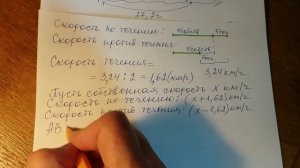 27,2ч
Скорость по течению: vсобств vтеч
Скорость против течения
vсобств
vтеч
Скорость течения =
= 3,24 : 2 = 1,62 (км/ч) 3,24 км/ч
Пусть собственная скорость x км/ч
Скорость по течению: (x+1,62) км/ч
Скорость против течения: (x-1,62) км/ч
АВ